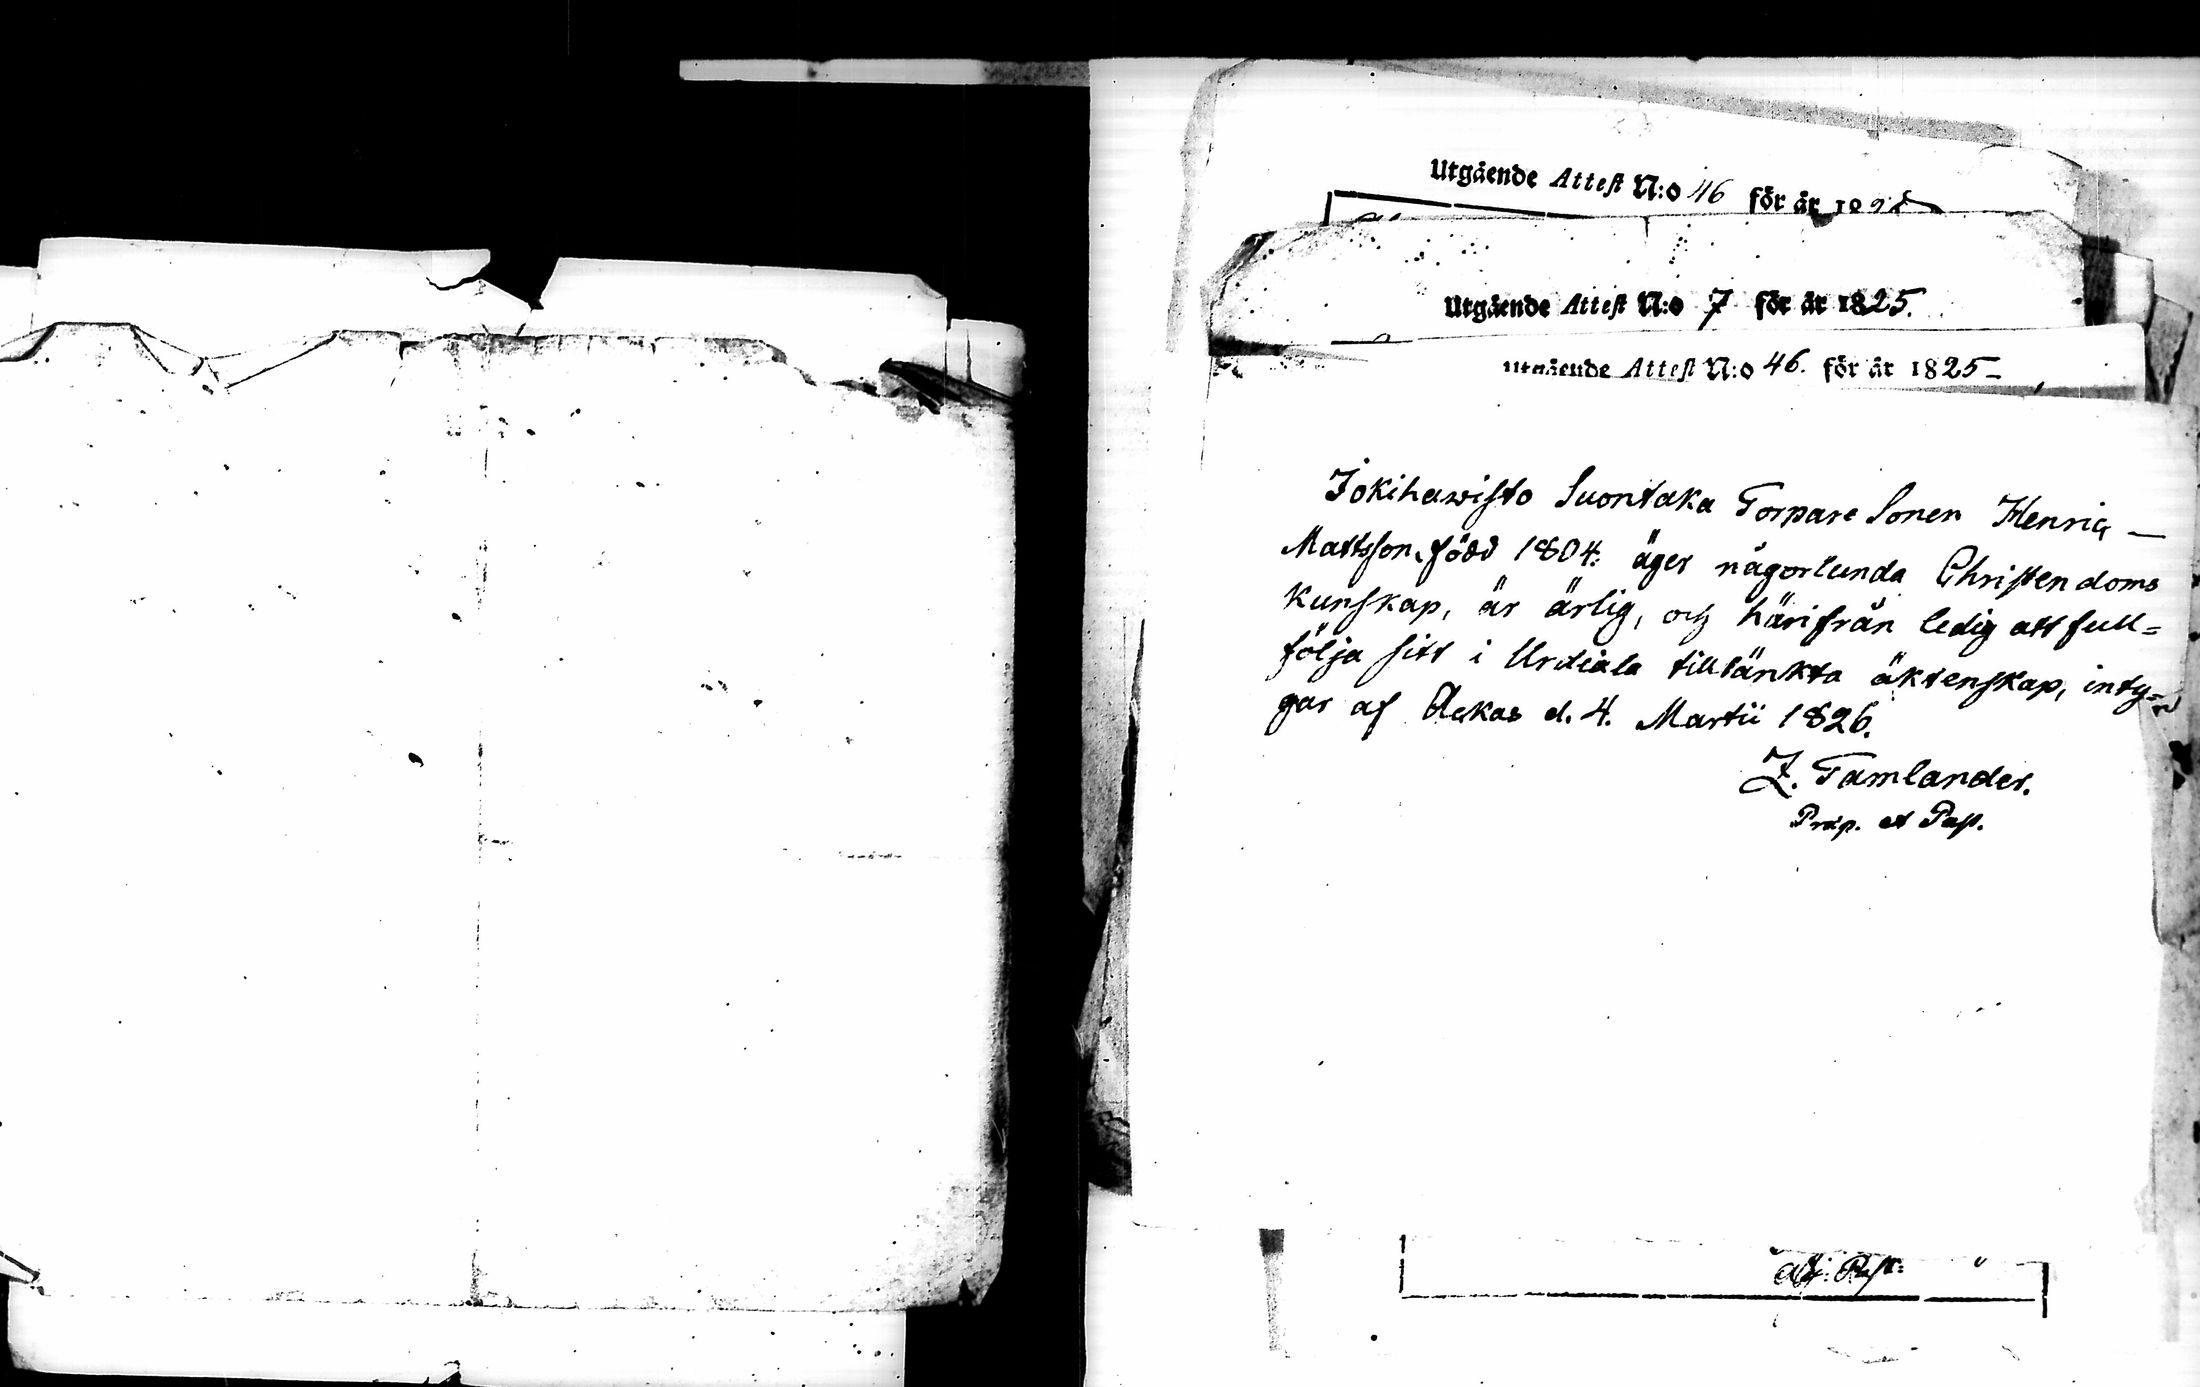 Utgående Attest N:o 46 för år
Utgående Attest N:o 7 för år 1825.
Utgående Attest N:o 46. för år 1825 –
Jokihawisto Suontaka Torpare Sonen Henric –
Mattsson, född 1804: äger någorlunda Christendoms
kunskap, är ärlig, och härifrån ledig att full=
följa sitt i Urdiala tilltänkta äktenskap, inty=
gar af Ackas d. 4. Martii 1826.
Z. Tamlander.
Præp. et Past.
Adj: Past: